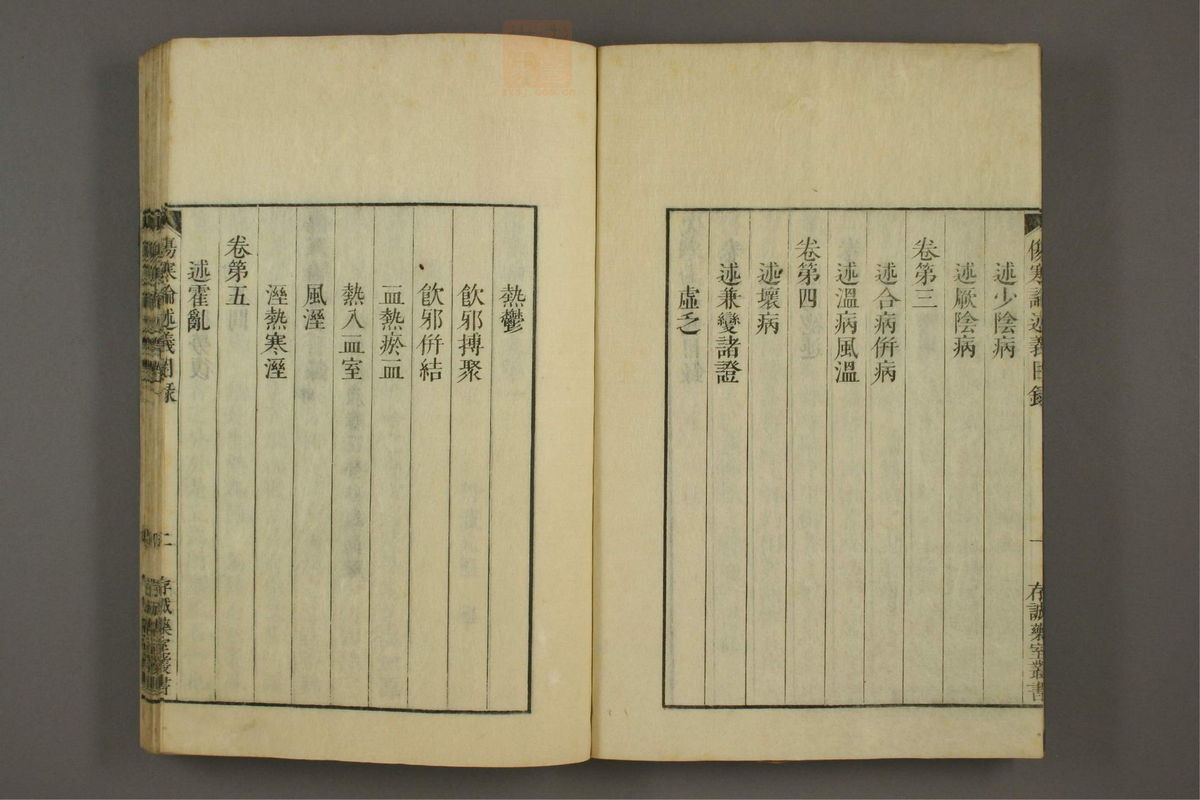 傷寒論述義目錄
一
存誠藥室叢書
述少陰病
述厥陰病
卷第三
述合病併病
述溫病風溫
卷第四
述壞病
述兼變諸證
虛乏
熱鬱
飲邪搏聚
飲邪併結
血熱瘀血
熱入血室
風溼
溼熱寒溼
卷第五
述霍亂
傷寒論述義目錄
二
存誠藥室叢書